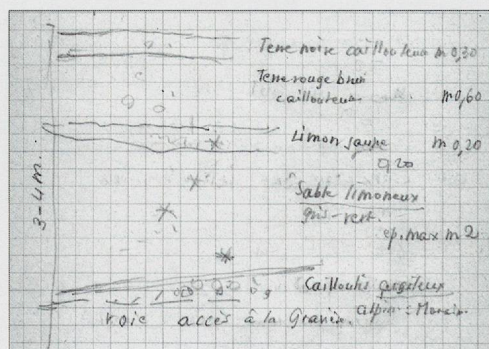 Terre noire caillouteuse m 0,30
Terre rouge brun
caillouteuse m 0,60
Limon jaune m 0,20
0,20
3-4 m.
Sable limoneux
gris-vert.
ép. max m 2
Cailloutis argileux
alpin
Voie accès à la Gravière.